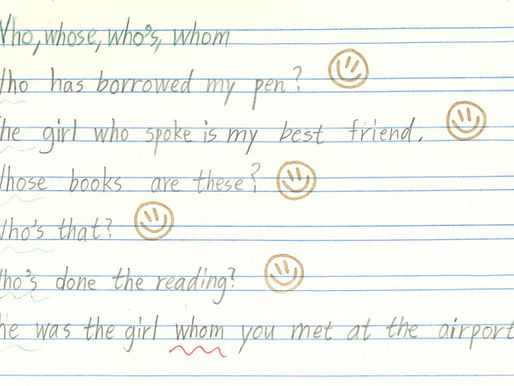 Who, whose, who's, whom
Who has borrowed my pen?
he girl who spoke is my best friend.
Whose books are these?
Who's that?
Who's done the reading?
he was the girl whom you met at the airport